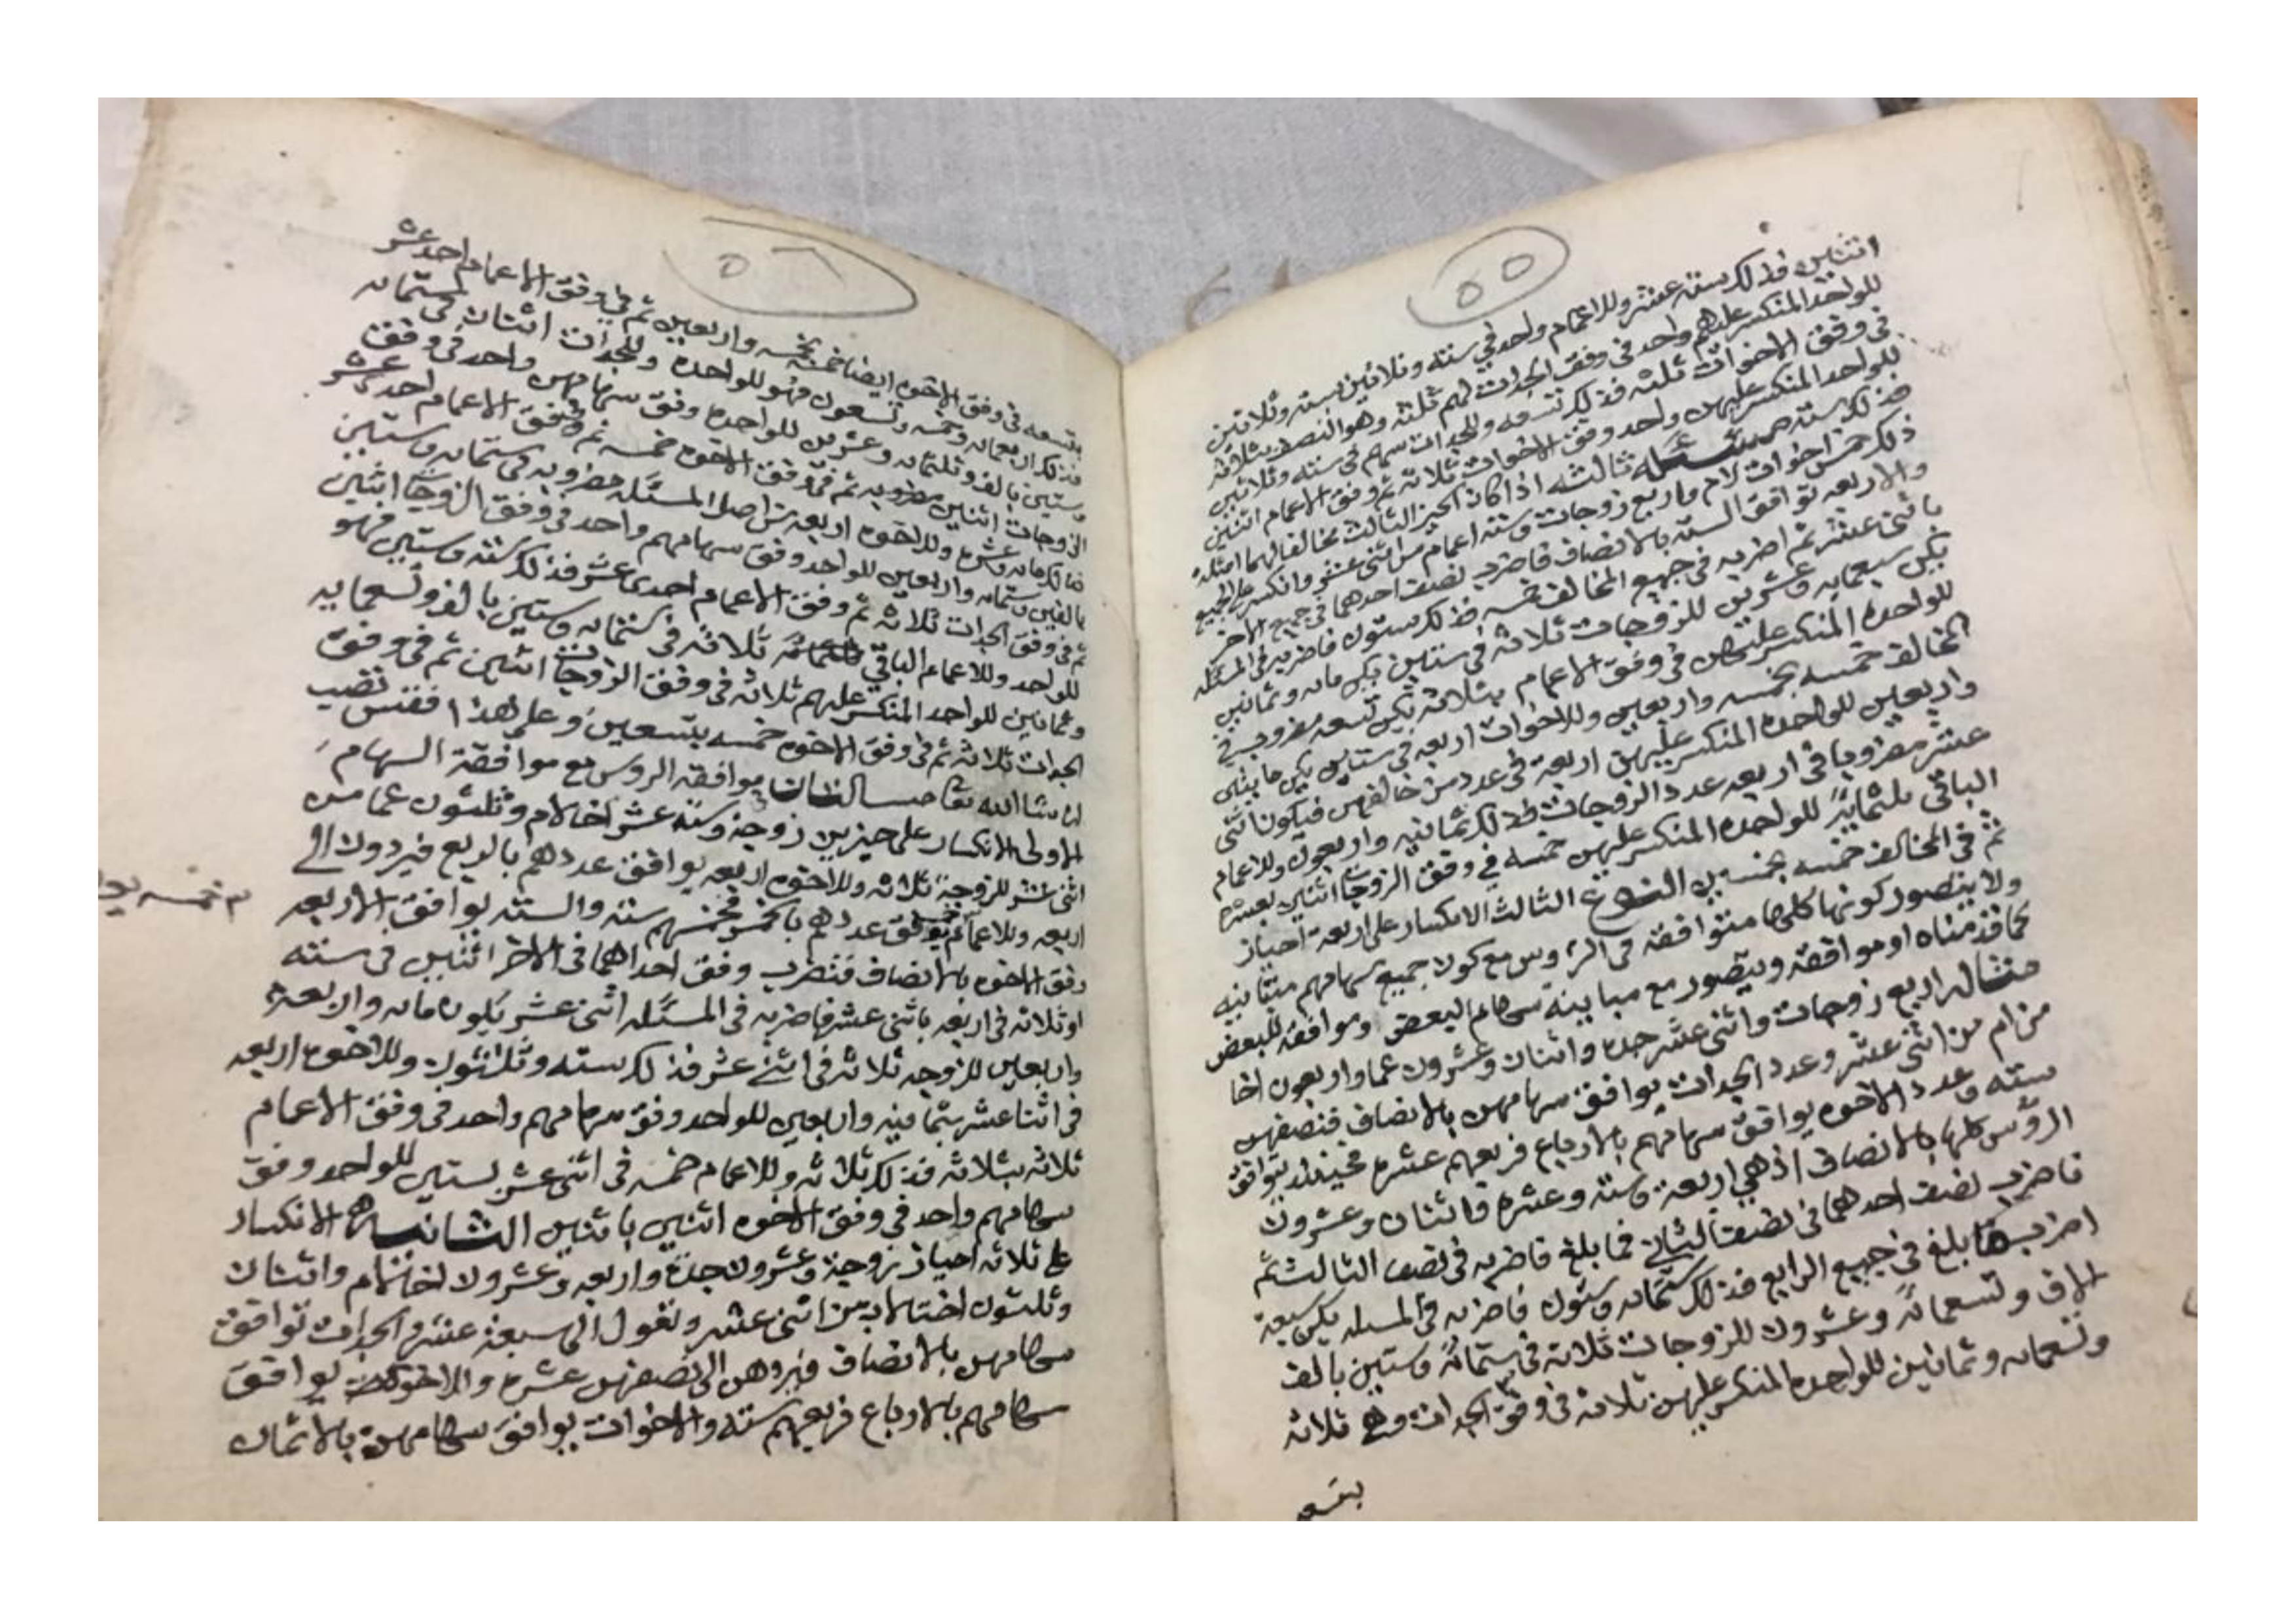 ٥٥
اثنين فذلك ستة عشر وللاعمام واحد في ستة وثلاثين بستة وثلاثين
للواحد المنكسر عليهم واحد في وفق الجدات لهم ثلثه وهو النصف بثلاثة
في وفق الاخوات ثلثه فذلك تسعه وللجدات سهم في ستة وثلاثين
للواحد المنكسر عليهن واحد وفق الاخوات ثلاثه ثم وفق الاعمام اثنين
فذلك سته مسئله ثالثه اذا كان الحيز الثالث مخالفا لهما امثلة
ذلك خمس اخوات لام واربع زوجات وسته اعمام من اثني عشر وانكسر على الجميع
والاربعه توافق السته بالانصاف فاضرب نصف احدهما في جميع الاخر
باثني عشر ثم اضربه في جميع المخالف خمسه فذلك ستون فاضربه في المسئله
يكن سبعمايه وعشرين للزوجات ثلاثه في ستين يكن مايه وثمانين
للواحده المنكسر عليهن في وفق الاعمام بثلاثه يكن تسعه مضروب في
المخالف خمسه بخمسه واربعين وللاخوات اربعه في ستين يكن مايتين
واربعين للواحده المنكسر عليهن اربعة في عدد من خالفهن فيكون اثني
عشر مضروبا في اربعه عدد الزوجات فذلك ثمانيه واربعون وللاعمام
الباقي ثلثماية للواحده المنكسر عليهن خمسه في وفق الزوجات اثنين بعشره
ثم في المخالف خمسه بخمسين النوع الثالث الانكسار على اربعة احياز
ولا يتصور كونها كلها متوافقه في الروس مع كون جميع سهامهم متباينه
لما قدمناه او موافقه ويتصور مع مباينة سهام البعض وموافقه للبعض
مثاله اربع زوجات واثني عشر جده واثنان وعشرون عما واربعون اخا
من ام من اثني عشر وعدد الجدات يوافق سهامهن بالانصاف فنصفهن
سته وعدد الاخوه يوافق سهامهم بالارباع فربعهم عشره فحينئذ توافق
الروس كلها بالانصاف اذ هي اربعة وسته وعشره واثنان وعشرون
فاضرب نصف احدهما في نصف الثاني فما بلغ فاضربه في نصف الثالث ثم
اضرب ما بلغ في جميع الرابع فذلك ستمايه وستون فاضربه في المسئله يكن سبعة
الاف وتسعمائة وعشرون للزوجات ثلاثه في ستمائة وستين بالف
وتسعمايه وثمانين للواحده المنكسر عليهن ثلاثه في وفق الجدات وهي ثلاثه
بتسعه
٥٦
بتسعه في وفق الاخوه ايضا خمسه بخمسه واربعين ثم في وفق الاعمام احد عشر
فذلك اربعمايه وخمسه وتسعون فهو للواحده وللجدات اثنان في ستمايه
وستين بالف وثلثمايه وعشرين للواحده وفق سهامهن واحد في وفق
الزوجات اثنين مضروبه ثم في وفق الاخوه خمسه ثم وفق الاعمام احد عشر
فذلك مايه وعشره وللاخوه اربعه من اصل المسئله مضروبه في ستمايه وستين
بالفين وستمايه واربعين للواحد وفق سهامهم واحد في وفق الزوجات اثنين
ثم في وفق الجدات ثلاثه ثم وفق الاعمام احدى عشر فذلك سته وستين فهو
للواحد وللاعمام الباقي ثلاثه في ستمايه وستين بالف وتسعمايه
وثمانين للواحد المنكسر عليهم ثلاثه في وفق الزوجات اثنين ثم في وفق
الجدات ثلاثه ثم في وفق الاخوه خمسه بتسعين وعلى هذا فقس تصيب
ان شا الله تعا موافقه الروس مع موافقة السهام
الاولى الانكسار على حيزين زوجة وسته عشر اخا لام وثلثون عما من
اثنى عشر للزوجة ثلاثه وللاخوه اربعه يوافق عددهم بالربع فيردون الى
اربعه وللاعمام خمسه توافق عددهم بالخمس فخمسهم سته والسته توافق الاربعه
وفق الاخوه بالانصاف فتضرب وفق احداهما في الاخر اثنين في سته
او ثلاثه في اربعه باثنى عشر فاضربه في المسئله اثنى عشر يكون مايه واربعة
واربعين للزوجه ثلاثه في اثني عشر فذلك سته وثلاثون وللاخوه اربعه
في اثنا عشر بثمانيه واربعين للواحد وفق سهامهم واحد في وفق الاعمام
ثلاثه بثلاثه فذلك ثلاثه وللاعمام خمسه في اثنى عشر بستين للواحد وفق
سهامهم واحد في وفق الاخوه اثنين باثنين الثانيه الانكسار
على ثلاثه احياز زوجة وعشرون جدة واربعه وعشرون اخا لام واثنان
وثلثون اختا لاب من اثنى عشر وتعول الى سبعة عشر والجدات توافق
سهامهن بالانصاف فيردهن الى نصفهن عشره والاخوه يوافق
سهامهم بالارباع فربعهم سته والاخوات يوافق سهامهن بالاثمان